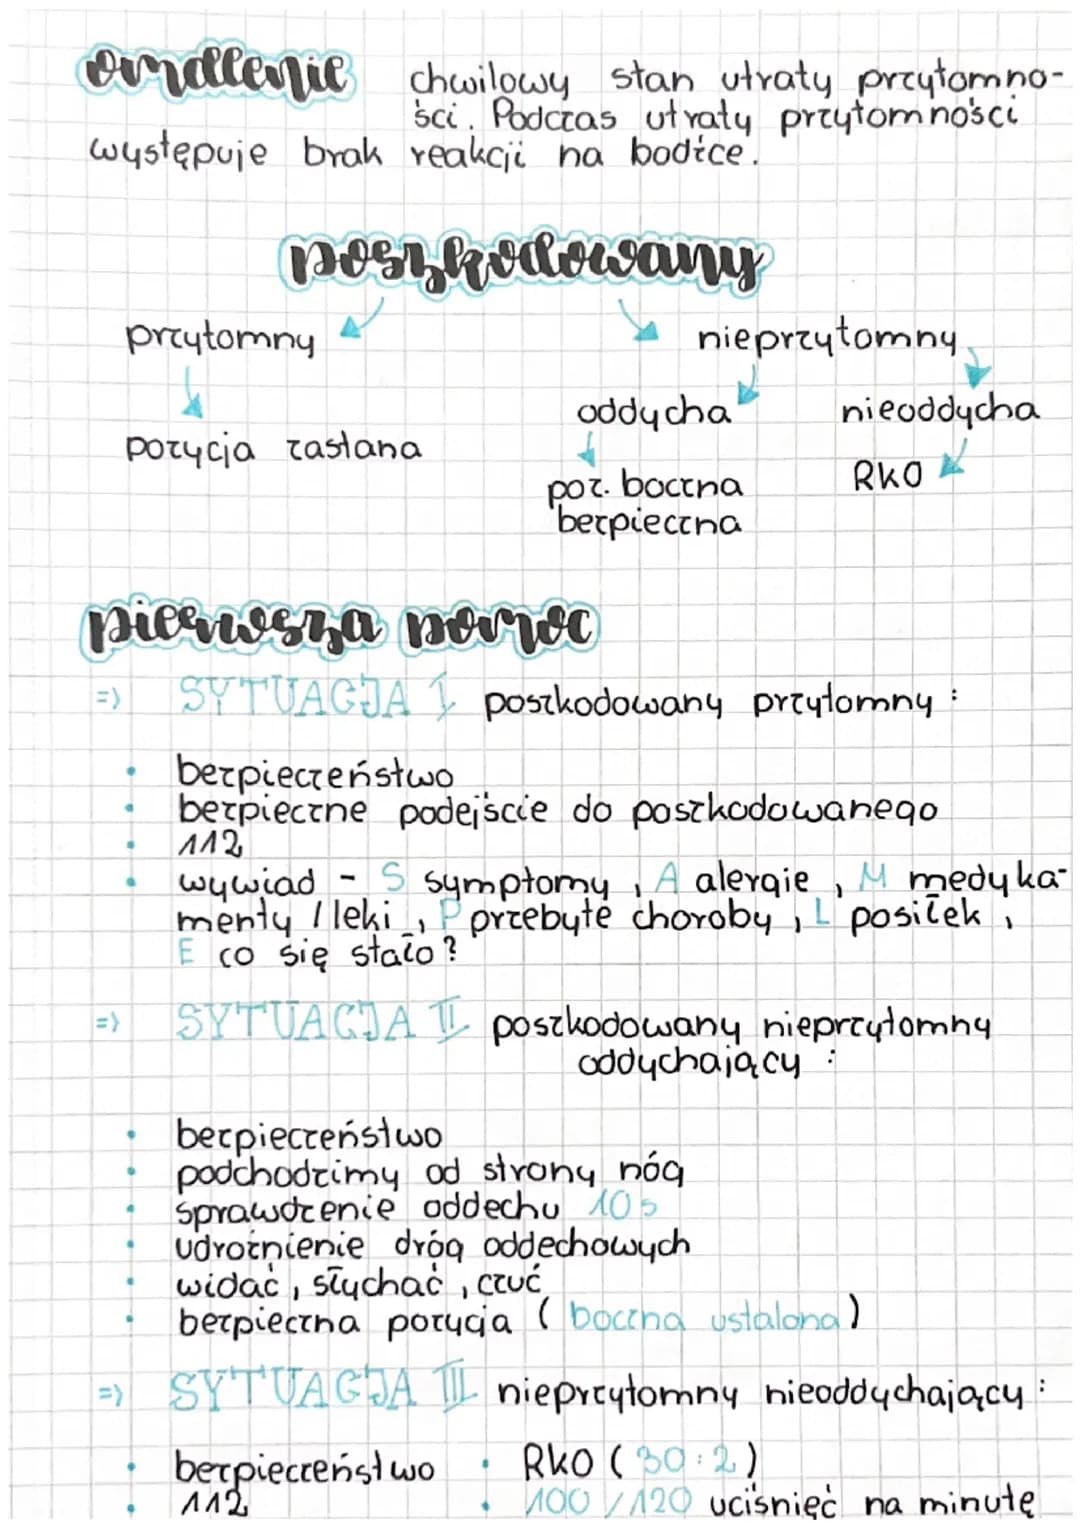 omdlenie chwilowy stan utraty przytomno-
ści. Podczas utraty przytomności
występuje brak reakcji na bodźce.
poszkodowany
przytomny nieprzytomny
oddycha nieoddycha
pozycja zastana
poz. boczna RKO
bezpieczna
pierwsza pomoc
=> SYTUACJA I poszkodowany przytomny :
• bezpieczeństwo
• bezpieczne podejście do poszkodowanego
• 112
• wywiad - S symptomy, A alergie, M medyka-
menty / leki, P przebyte choroby, L posiłek,
E co się stało?
=> SYTUACJA II poszkodowany nieprzytomny
oddychający :
• bezpieczeństwo
• podchodzimy od strony nóg
• sprawdzenie oddechu 10s
• udrożnienie dróg oddechowych
• widać, słychać, czuć
• bezpieczna pozycja (boczna ustalona)
=> SYTUACJA III nieprzytomny nieoddychający :
• bezpieczeństwo • RKO (30:2)
• 112 • 100/120 uciśnięć na minutę